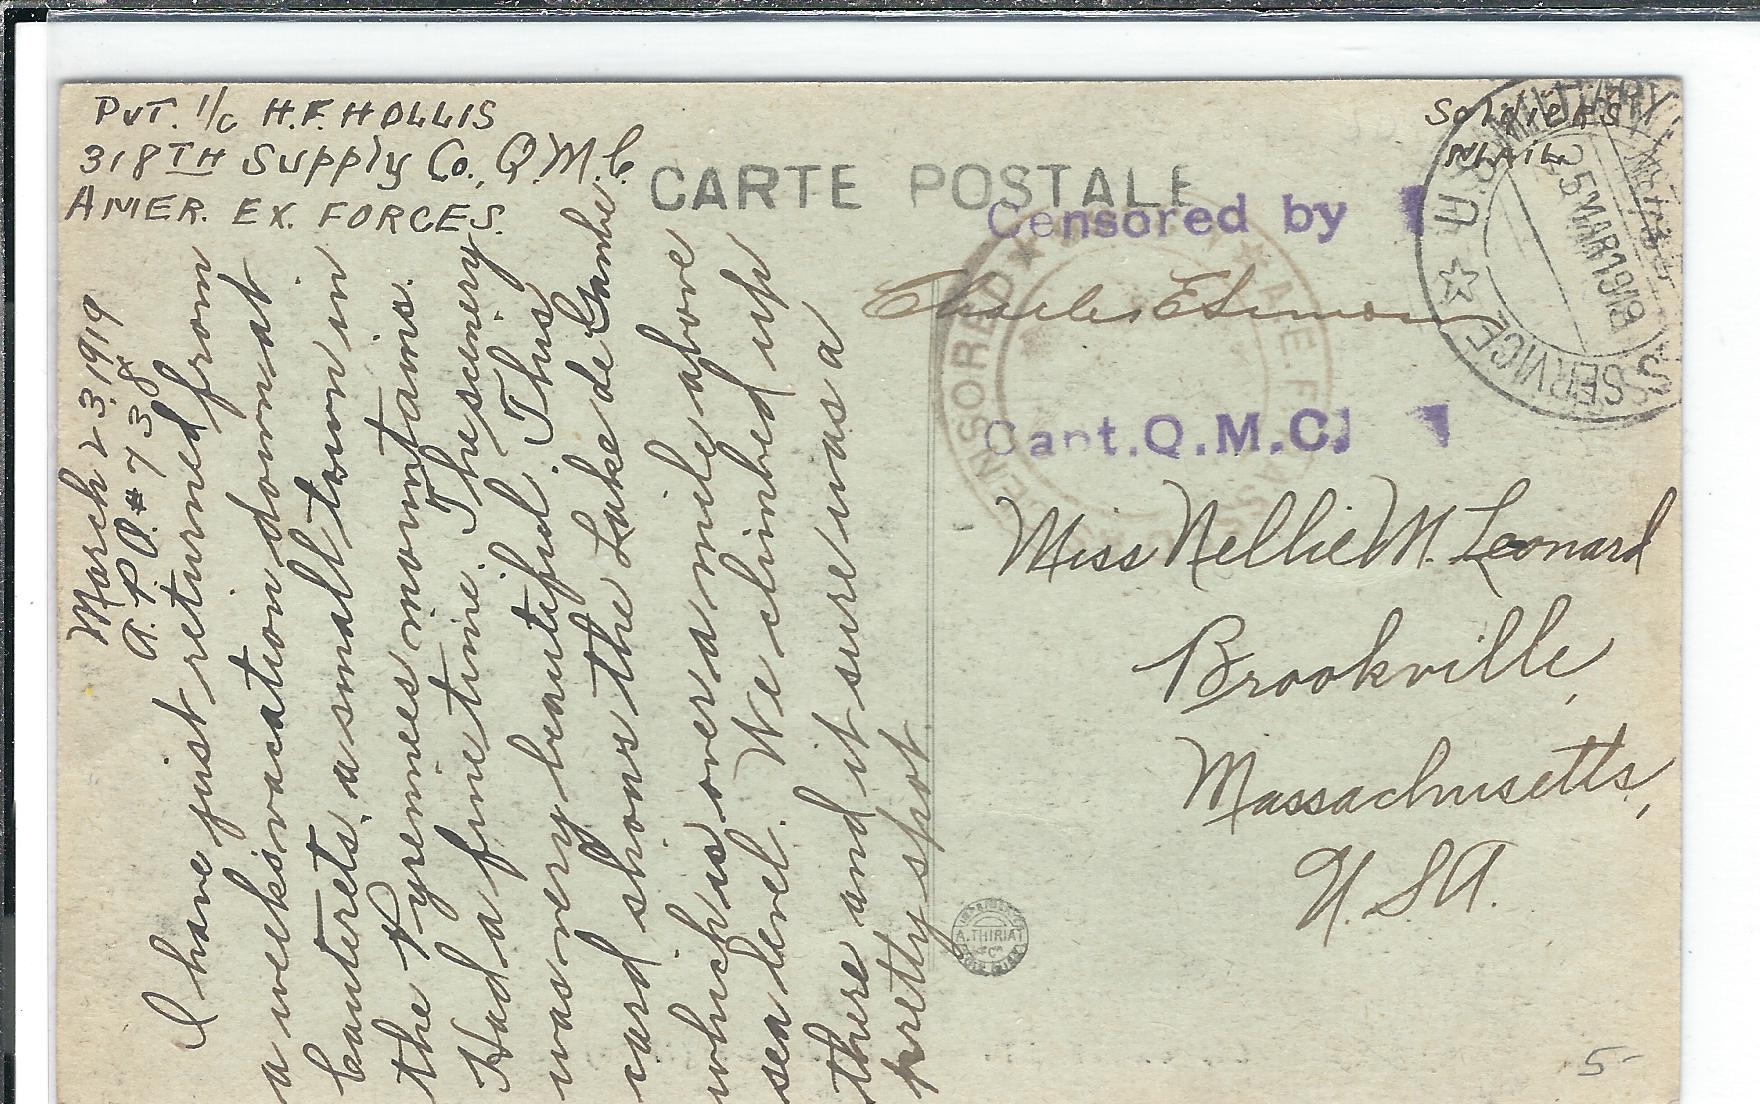 PVT. 1/C H.F. HOLLIS
318TH Supply Co., Q.M.C.
AMER. EX. FORCES.
CARTE POSTALE
Soldiers
Mail
U.S. MILITARY
SERVICE
25 MAR 1919
Censored by
Charles E Simon
Capt. Q.M.C.
CENSORED
A.E.F.
March 23, 1919
A.P.O. # 738
I have just returned from
a weeks vacation down at
Cauterets, a small town in
the Pyrenees mountains.
Had a fine time. The scenery
was very beautiful. This
card shows the Lake de Gaube
which is over a mile above
sea level. We climbed up
there and it sure was a
pretty spot
Miss Nellie M. Leonard
Brookville,
Massachusetts,
U.S.A.
A. THIRIAT
5-